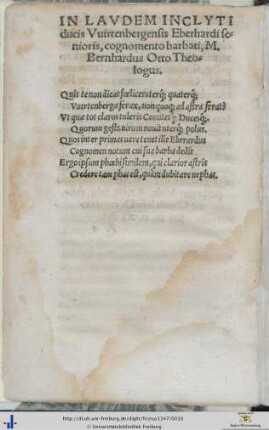 IN LAVDEM INCLYTI
ducis Vuirtenbergensis Eberhardi se-
nioris, cognomento barbati, M.
Bernhardus Otto Theo-
logus.
Quis te non dicat fœlicem terq; quaterq;
Vuirtenberga ferax, non quoq; ad astra ferat?
Vt quæ tot claros tuleris Comites q; Ducesq;,
Quorum gesta uirum nouit uterq; polus.
Quos inter primas uere tenet ille Eberardus
Cognomen notum cui sua barba dedit
Ergo ipsum phœbi splendem, qui clarior astris
Credere tam phas est, quàm dubitare nephas.
http://dl.ub.uni-freiburg.de/diglit/ficinus1547/0010
© Universitätsbibliothek Freiburg